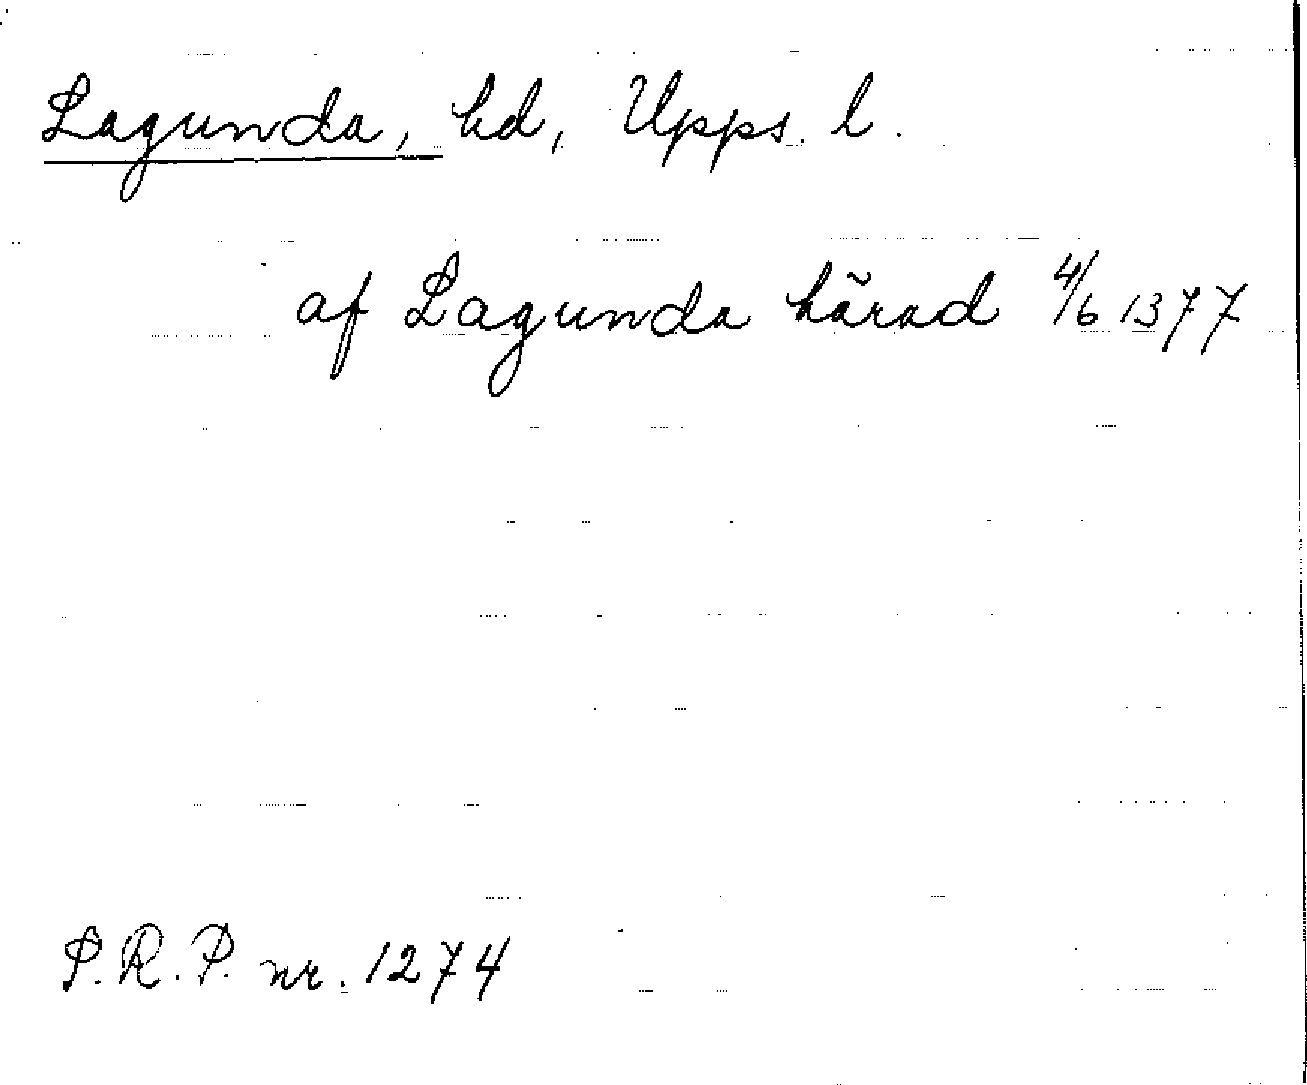 Lagunda, hd, Upps. l.
af Lagunda härad 4/6 1377
S.R.P. nr. 1274